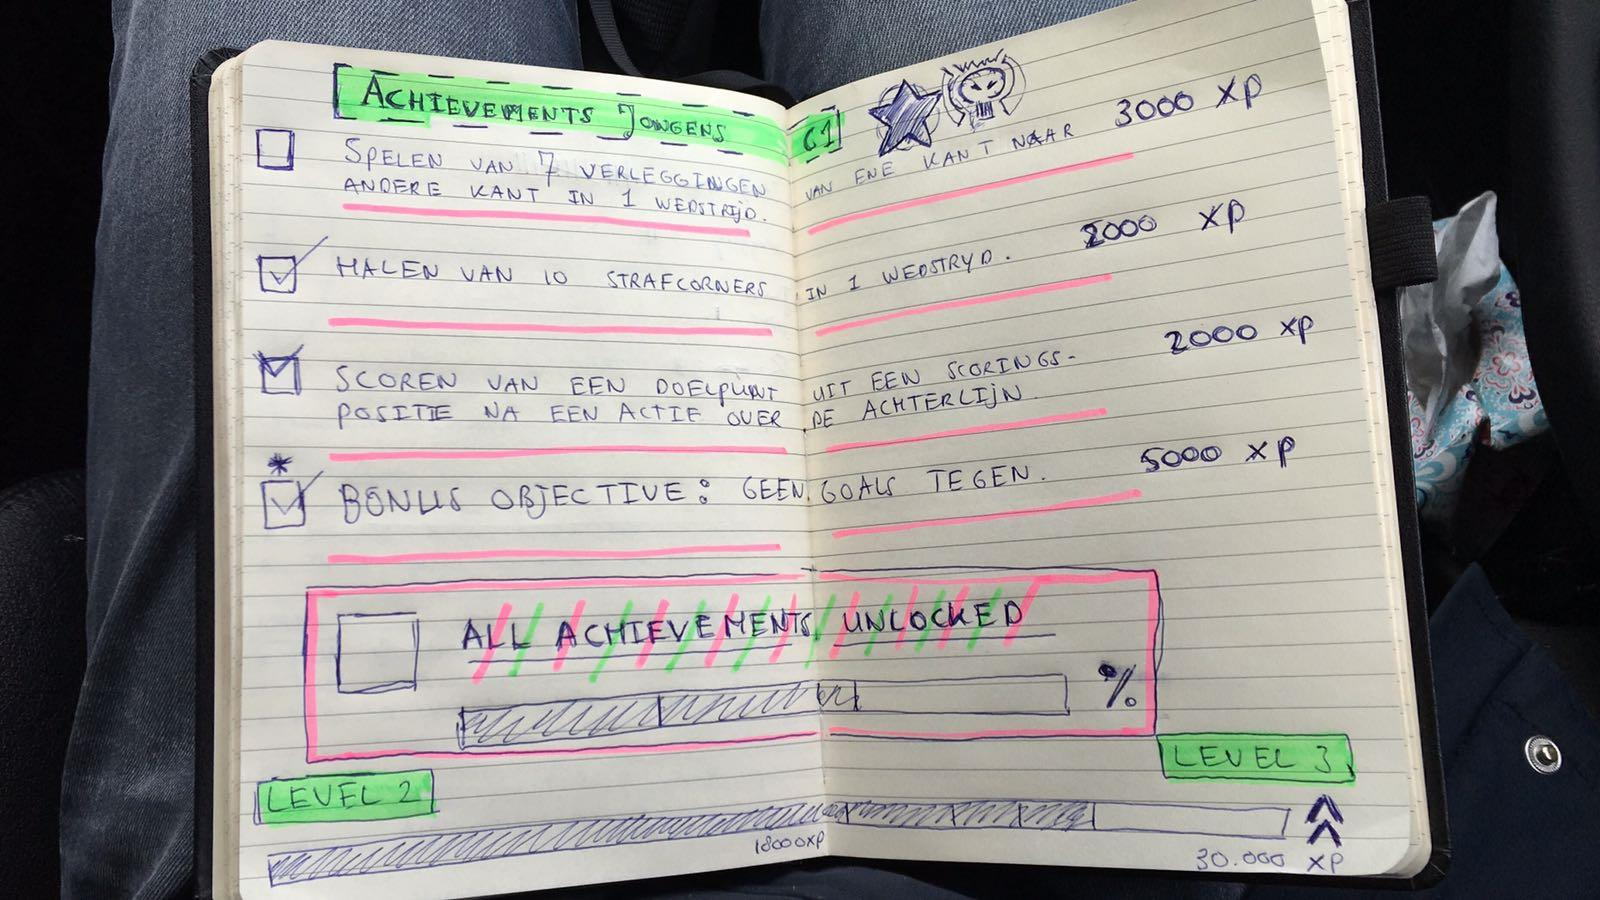 ACHIEVEMENTS JONGENS C1
SPELEN VAN 7 VERLEGGINGEN VAN ENE KANT NAAR 3000 XP
ANDERE KANT IN 1 WEDSTRIJD.
HALEN VAN 10 STRAFCORNERS IN 1 WEDSTRYD. 2000 XP
SCOREN VAN EEN DOELPUNT UIT EEN SCORINGS- 2000 XP
POSITIE NA EEN ACTIE OVER DE ACHTERLIJN.
* BONUS OBJECTIVE: GEEN GOALS TEGEN. 5000 XP
ALL ACHIEVEMENTS UNLOCKED
%
LEVEL 2 LEVEL 3
18000XP 30.000 XP